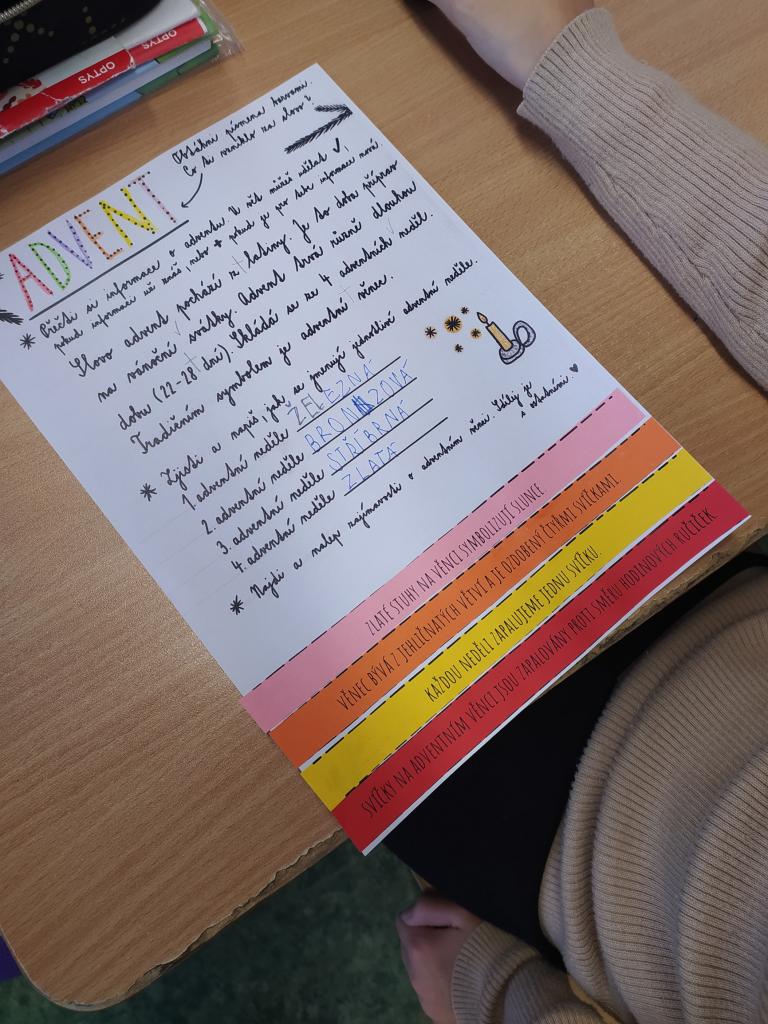 OPTYS
OPTYS
Obtáhni písmena barvami.
Co ti vzniklo za slovo?
ADVENT
Přečti si informace o adventu. U vět můžeš udělat ✓,
pokud informaci už znáš, nebo + pokud je pro tebe informace nová.
Slovo advent pochází z latiny. Je to doba příprav
na vánoční svátky. Advent trvá různě dlouhou
dobu (22-28 dní). Skládá se ze 4 adventních neděl.
Tradičním symbolem je adventní věnec.
Zjisti a napiš, jak se jmenují jednotlivé adventní neděle.
1. adventní neděle ŽELEZNÁ
2. adventní neděle BRONZOVÁ
3. adventní neděle STŘÍBRNÁ
4. adventní neděle ZLATÁ
Najdi a nalep zajímavosti o adventním věnci. Sdílej je
s ostatními. ♥
ZLATÉ STUHY NA VĚNCI SYMBOLIZUJÍ SLUNCE
VĚNEC BÝVÁ Z JEHLIČNATÝCH VĚTVÍ A JE OZDOBENÝ ČTYŘMI SVÍČKAMI.
KAŽDOU NEDĚLI ZAPALUJEME JEDNU SVÍČKU.
SVÍČKY NA ADVENTNÍM VĚNCI JSOU ZAPALOVÁNY PROTI SMĚRU HODINOVÝCH RUČIČEK